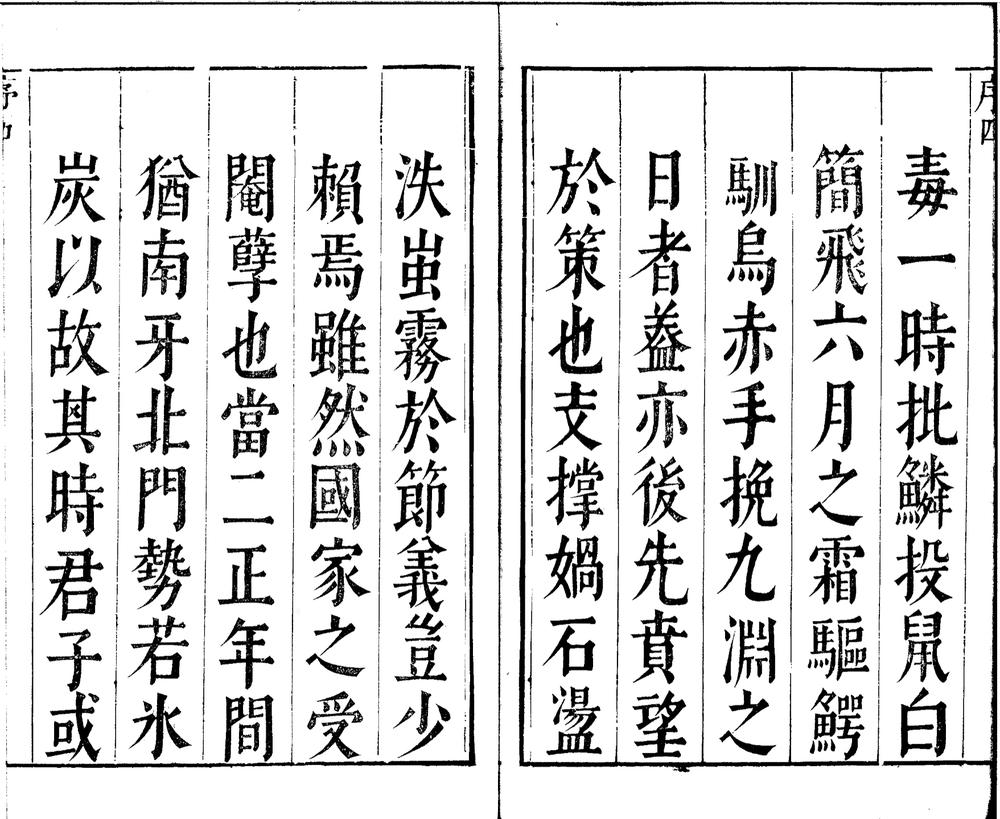 序四
毒一時批鱗投鼠白
簡飛六月之霜驅鰐
馴烏赤手挽九淵之
日者葢亦後先賁望
於策也支撐媧石盪
泆蚩霧於節義豈少
賴焉雖然國家之受
閹孽也當二正年間
猶南牙北門勢若氷
炭以故其時君子或